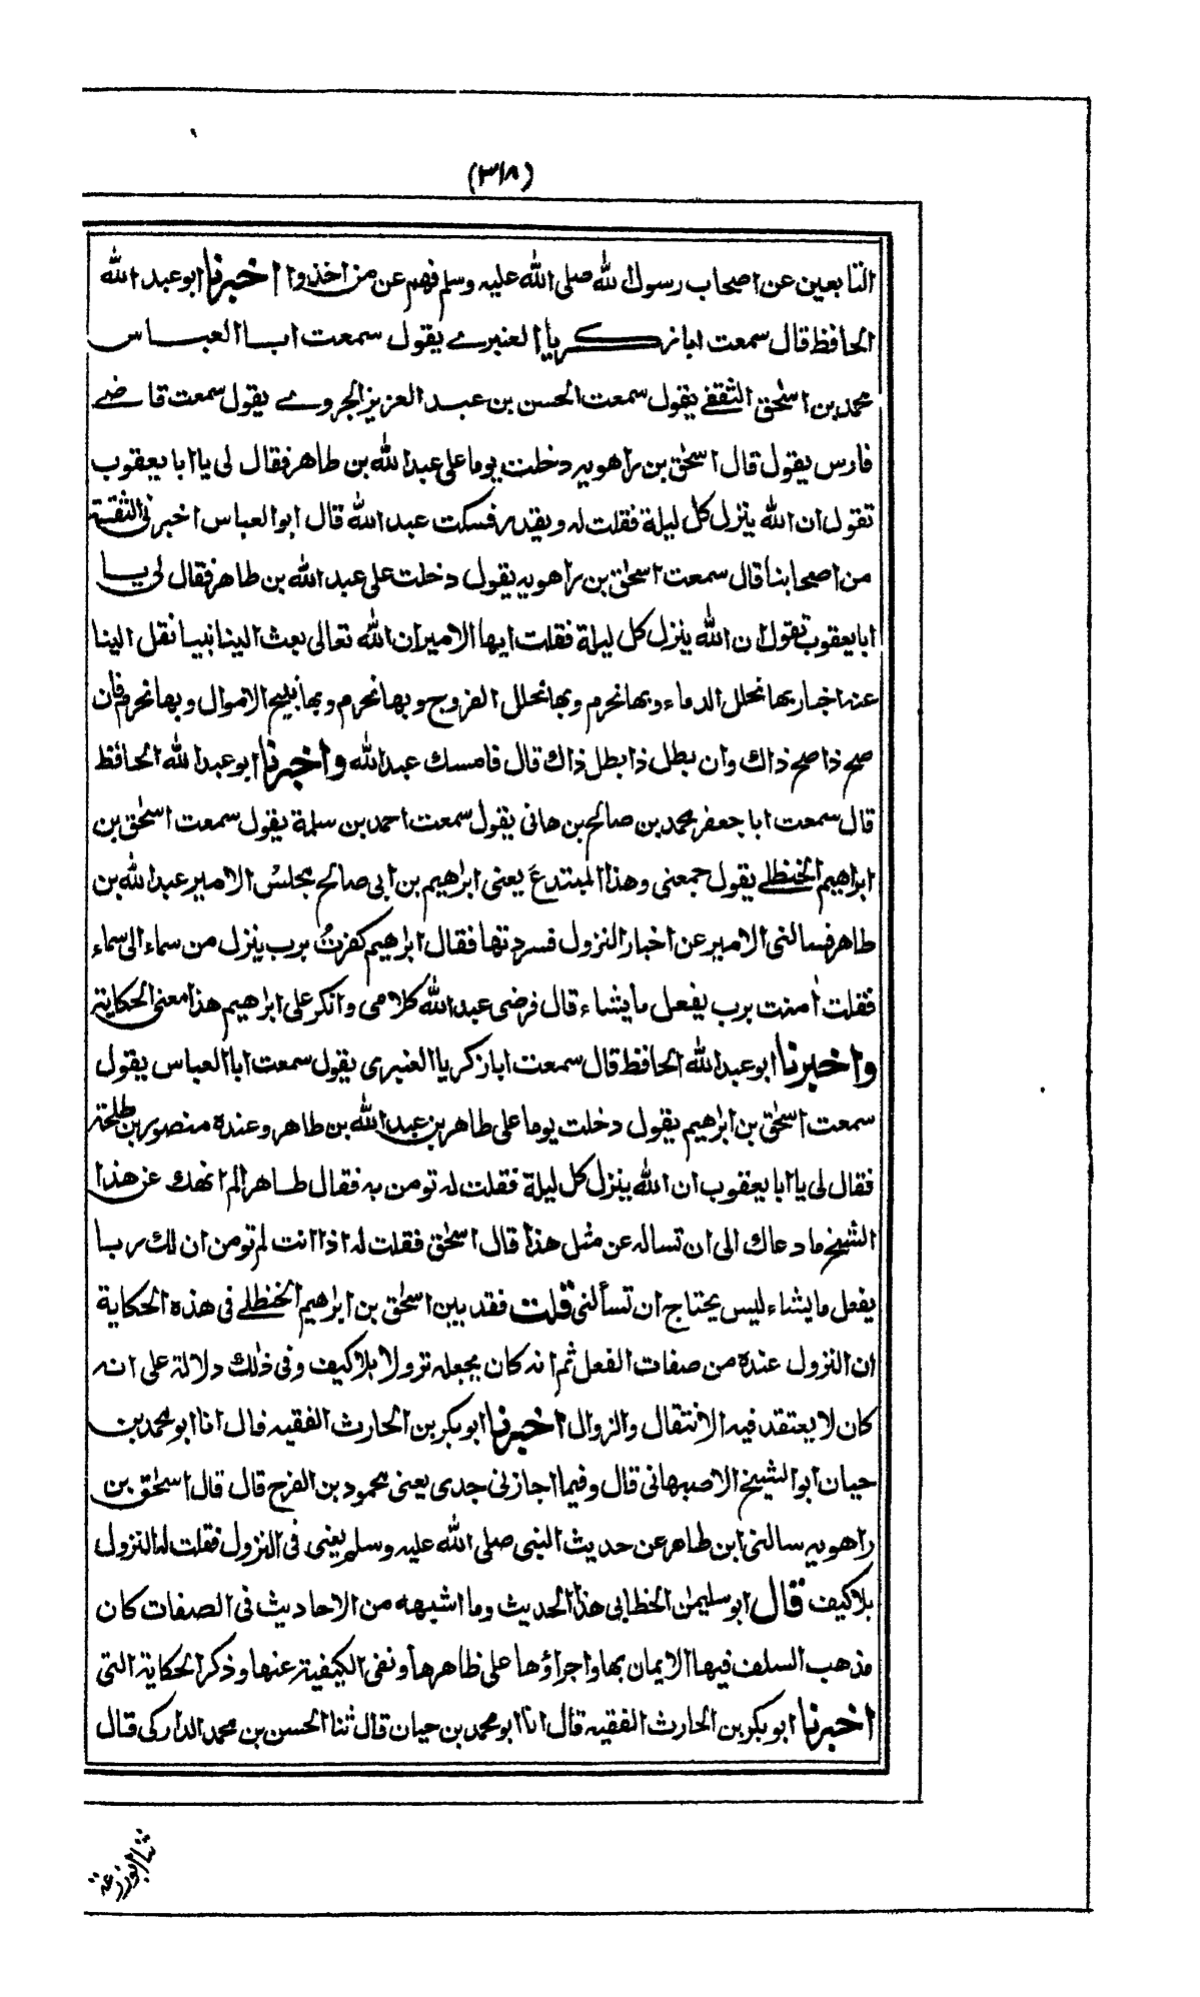 (٣١٨)
التابعين عن اصحاب رسول الله صلى الله عليه وسلم فهم عن من اخذوا اخبرنا ابو عبد الله
الحافظ قال سمعت ابا زكريا العنبرے يقول سمعت ابا العباس
محمد بن اسحٰق الثقفے يقول سمعت الحسن بن عبد العزيز الجروے يقول سمعت قاضے
فارس يقول قال اسحٰق بن راهويه دخلت يوما على عبد الله بن طاهر فقال لى يا ابا يعقوب
تقول ان الله ينزل كل ليلة فقلت له ويقدر فسكت عبد الله قال ابو العباس اخبرنى الثقة
من اصحابنا قال سمعت اسحٰق بن راهويه يقول دخلت على عبد الله بن طاهر فقال لى يا
ابا يعقوب تقول ان الله ينزل كل ليلة فقلت ايها الامير ان الله تعالى بعث الينا نبيا نقل الينا
عنه اخبار بها نحلل الدماء وبها نحرم وبها نحلل الفروج وبها نحرم وبها نبيح الاموال وبها نحرم فان
صح ذا صح ذاك وان بطل ذا بطل ذاك قال فامسك عبد الله واخبرنا ابو عبد الله الحافظ
قال سمعت ابا جعفر محمد بن صالح بن هانى يقول سمعت احمد بن سلمة يقول سمعت اسحٰق بن
ابراهيم الحنظلے يقول جمعنى وهذا المبتدع يعنى ابراهيم بن ابى صالح مجلس الامير عبد الله بن
طاهر فسالنى الامير عن اخبار النزول فسردتها فقال ابراهيم كفرت برب ينزل من سماء الى سماء
فقلت اٰمنت برب يفعل ما يشاء قال فرضى عبد الله كلامى وانكر على ابراهيم هذا معنى الحكاية
واخبرنا ابو عبد الله الحافظ قال سمعت ابا زكريا العنبرى يقول سمعت ابا العباس يقول
سمعت اسحٰق بن ابراهيم يقول دخلت يوما على طاهر بن عبد الله بن طاهر وعنده منصور بن طلحة
فقال لى يا ابا يعقوب ان الله ينزل كل ليلة فقلت له تومن به فقال طاهر الم انهك عن هذا
الشيخ ما دعاك الى ان تساله عن مثل هذا قال اسحٰق فقلت له اذا انت لم تومن ان لك ربا
يفعل ما يشاء ليس يحتاج ان تسألنى قلت فقد بين اسحٰق بن ابراهيم الحنظلے فى هذه الحكاية
ان النزول عنده من صفات الفعل ثم انه كان يجعله نزولا بلا كيف وفى ذٰلك دلالة على انه
كان لا يعتقد فيه الانتقال والزوال اخبرنا ابو بكر بن الحارث الفقيه قال انا ابو محمد بن
حيان ابو الشيخ الاصبهانى قال وفيما اجازنى جدى يعنى محمود بن الفرج قال قال اسحٰق بن
راهويه سالنى ابن طاهر عن حديث النبى صلى الله عليه وسلم يعنى فى النزول فقلت له النزول
بلا كيف قال ابو سليمٰن الخطابى هذا الحديث وما اشبهه من الاحاديث فى الصفات كان
مذهب السلف فيها الايمان بها واجراؤها على ظاهرها ونفى الكيفية عنها وذكر الحكاية التى
اخبرنا ابو بكر بن الحارث الفقيه قال انا ابو محمد بن حيان قال ثنا الحسن بن محمد الداركى قال
ثنا ابو زرعة